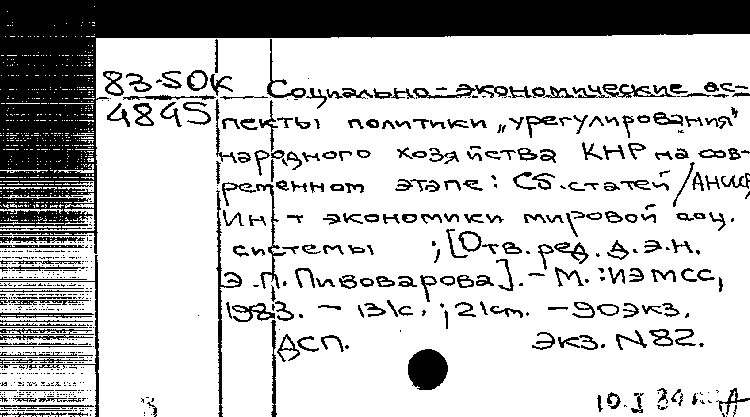 83-50К Социально-экономические ас-
4845 пекты политики „урегулирования"
народного хозяйства КНР на сов-
ременном этапе: Сб. статей / АНССР
Ин-т экономики мировой соц.
системы ; [Отв. ред. д.э.н.
Э.П. Пивоварова]. - М.: ИЭМСС,
1983. - 131с. ; 21см. - 90экз.
ДСП. Экз. N82.
10.I 84